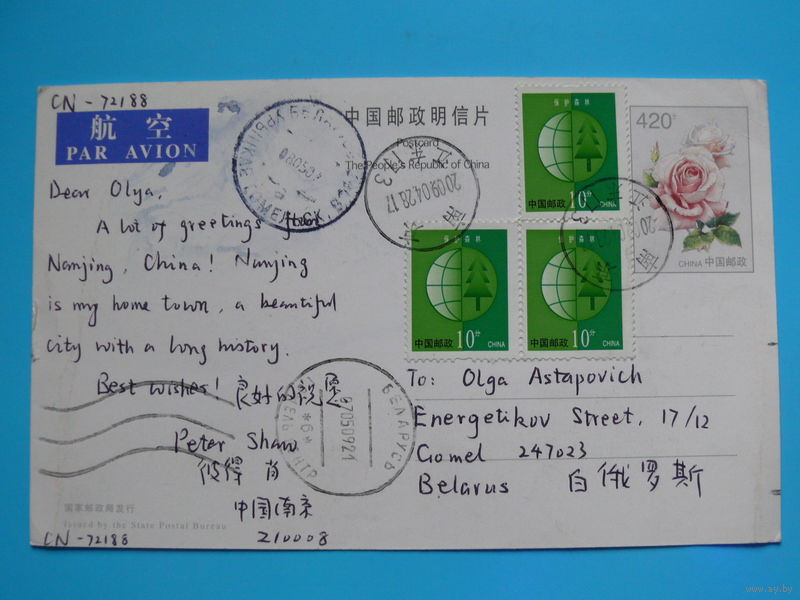 CN - 72188
航 空
PAR AVION
中国邮政明信片
Postcard
The People's Republic of China
Dear Olya,
A lot of greetings from
Nanjing, China! Nanjing
is my home town, a beautiful
city with a long history.
Best wishes! 良好的祝愿
Peter Shaw
彼得 肖
中国南京
210008
国家邮政局发行
Issued by the State Postal Bureau
CN - 72188
保护森林
中国邮政 10分 CHINA
保护森林
中国邮政 10分 CHINA
保护森林
中国邮政 10分 CHINA
420分
CHINA 中国邮政
2009.04.28.17
江苏
080503
БЕЛАРУСЬ
*6*
07050921
To: Olga Astapovich
Energetikov Street, 17/12
Gomel 247023
Belarus 白俄罗斯
www.ay.by